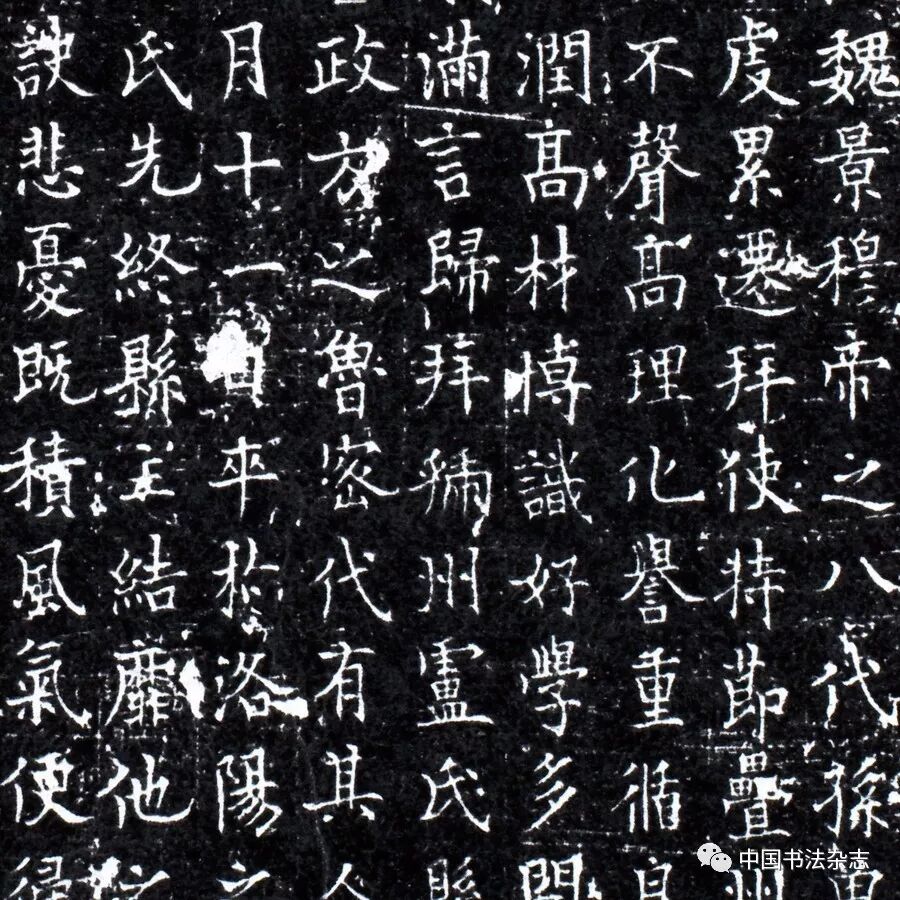 魏景穆帝之八代孫曾
虔累遷拜使持節疊州
不聲高理化譽重循良
潤高材博識好學多聞
滿言歸拜虢州盧氏縣
政方之魯密代有其人
月十一日卒於洛陽之
氏先終縣主結靡他之
訣悲憂既積風氣便侵
中国书法杂志